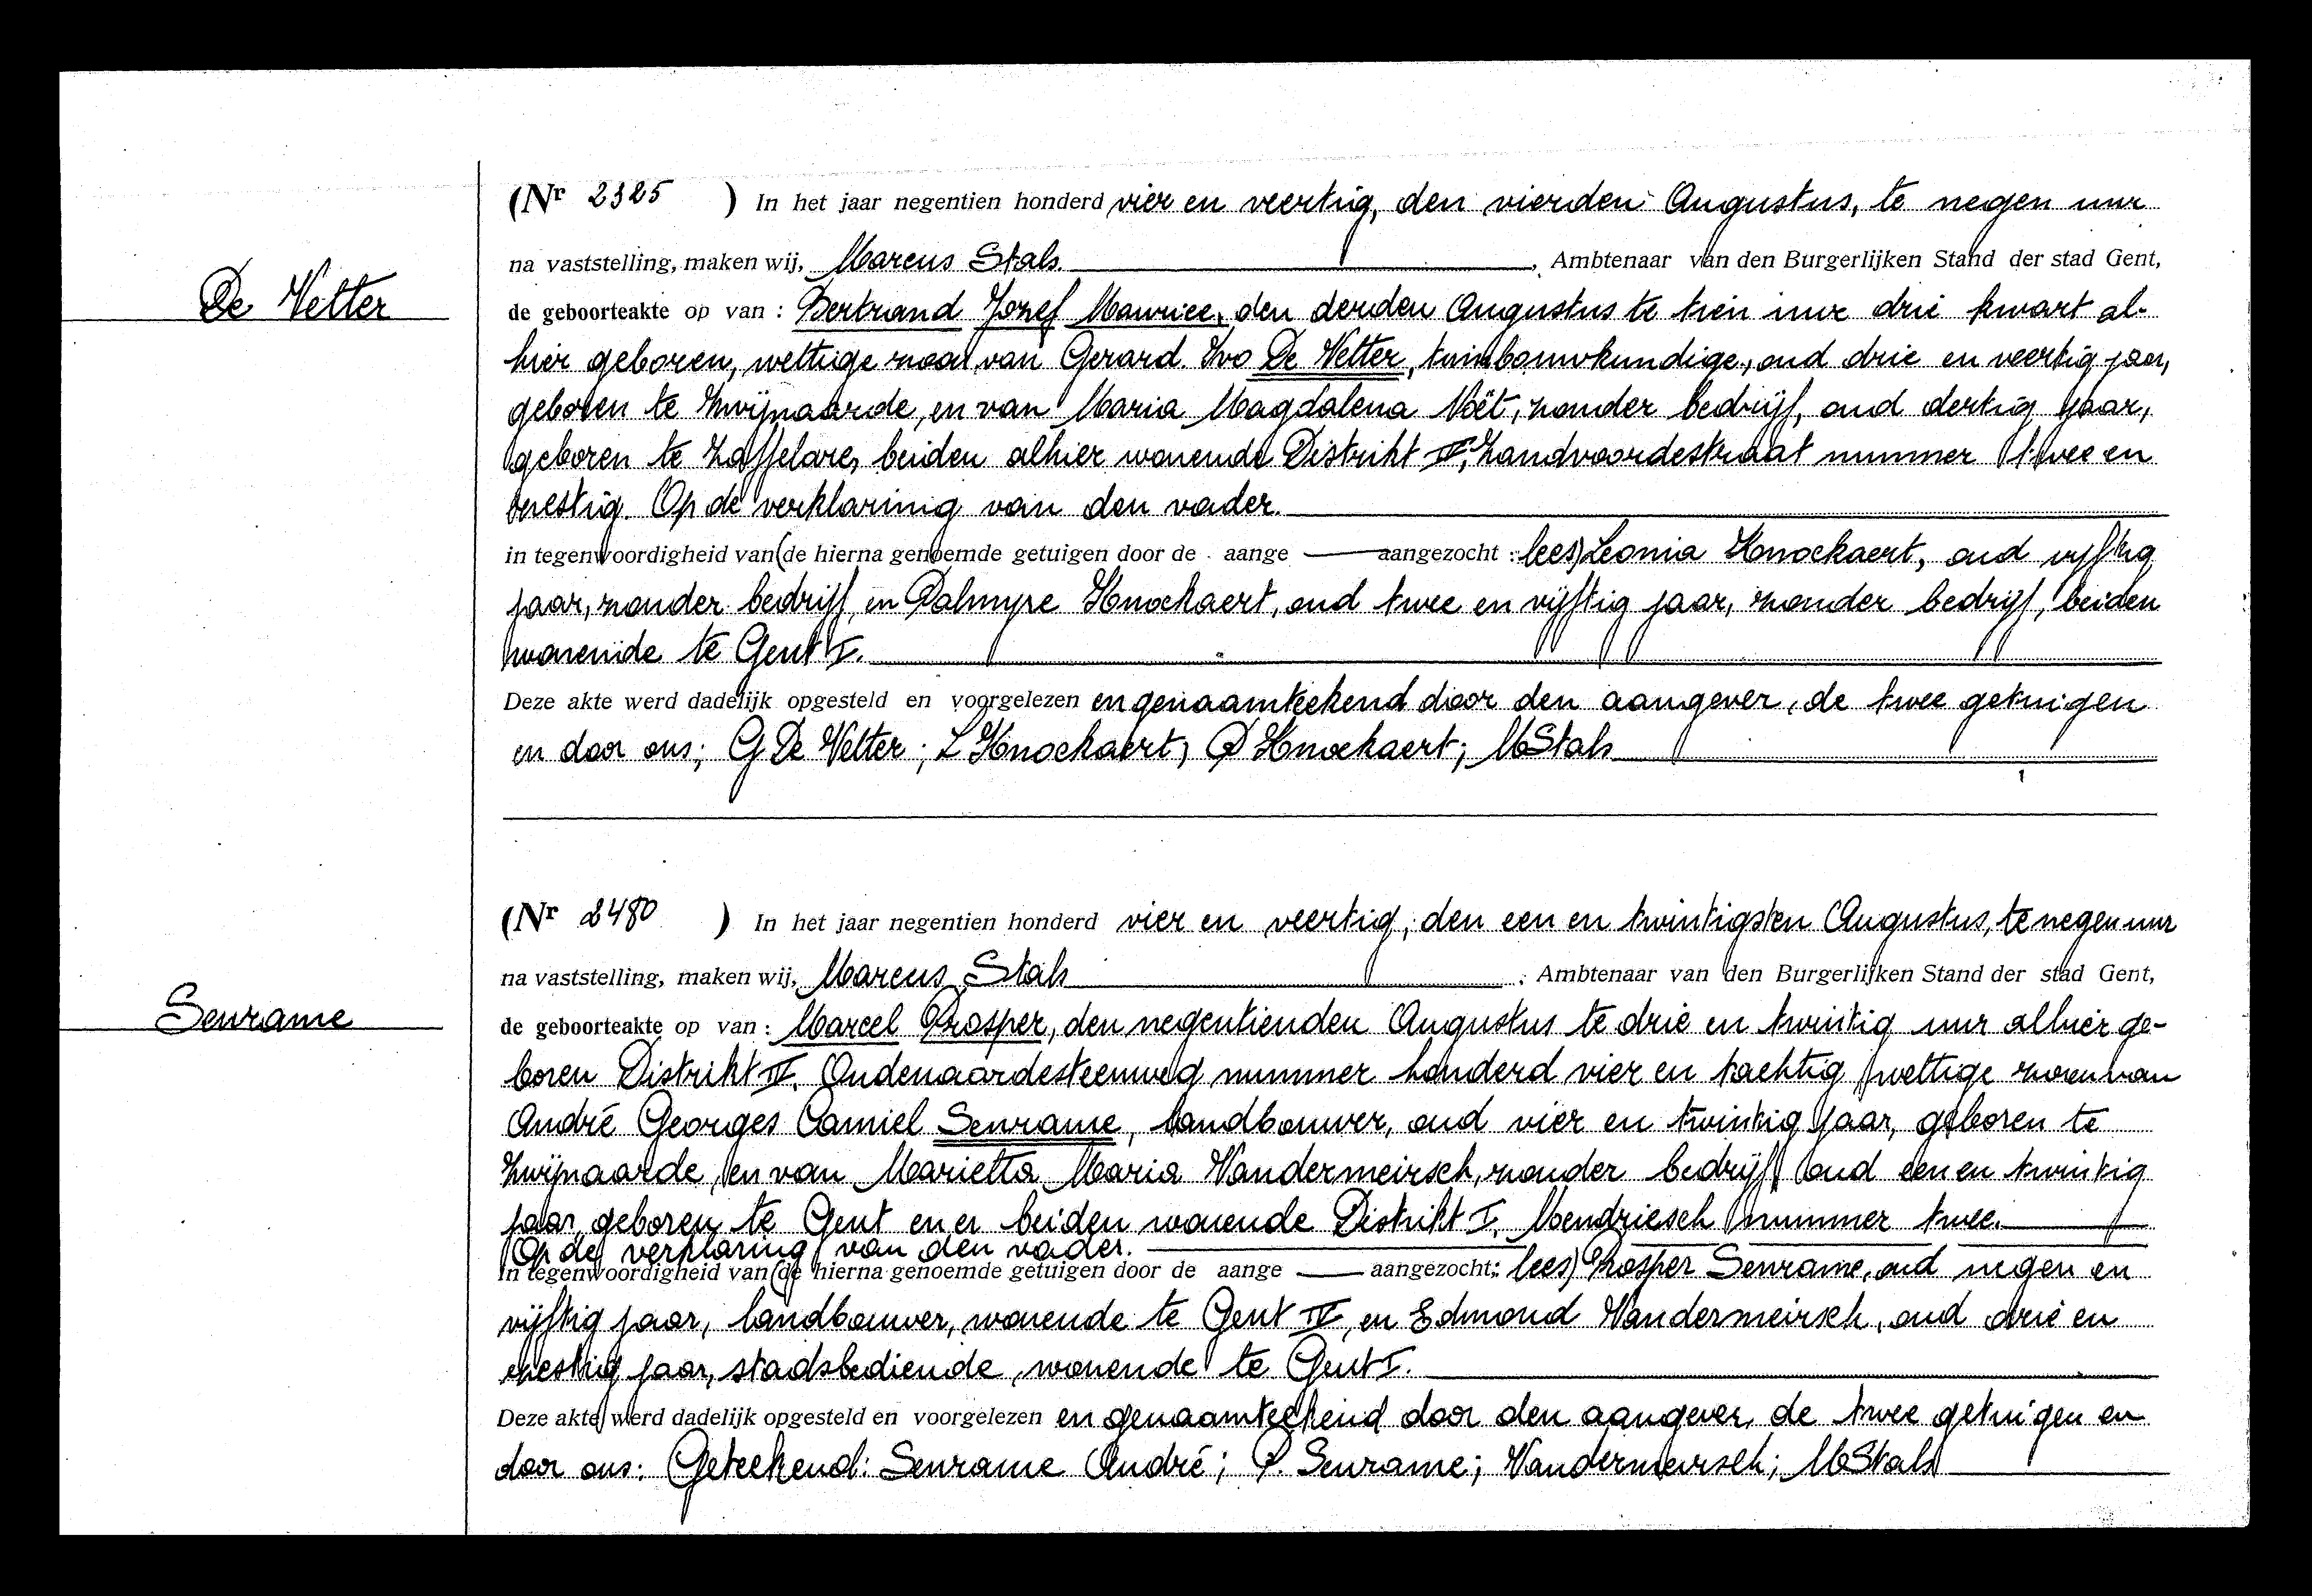 (Nr 2325 ) In het jaar negentien honderd vier en veertig, den vierden Augustus, te negen uur
na vaststelling, maken wij, Marcus Stals , Ambtenaar van den Burgerlijken Stand der stad Gent,
De Vetter
de geboorteakte op van : Bertrand Jozef Maurice, den derden Augustus te tien uur drie kwart al-
hier geboren, wettige zoon van Gerard Ivo De Vetter, tuinbouwkundige, oud drie en veertig jaar,
geboren te Zwijnaarde, en van Maria Magdalena Moët, zonder bedrijf, oud dertig jaar,
geboren te Zaffelare, beiden alhier wonende Distrikt IV, Zandvoordestraat nummer twee en
zestig. Op de verklaring van den vader.
in tegenwoordigheid van (de hierna genoemde getuigen door de aange aangezocht : lees) Leonia Knockaert, oud vijftig
jaar, zonder bedrijf, en Palmyre Knockaert, oud twee en vijftig jaar, zonder bedrijf, beiden
wonende te Gent I.
Deze akte werd dadelijk opgesteld en voorgelezen en genaamteekend door den aangever, de twee getuigen
en door ons; G De Vetter ; L Knockaert; P Knockaert; MStals
(Nr 2480 ) In het jaar negentien honderd vier en veertig, den een en twintigsten Augustus, te negen uur
na vaststelling, maken wij, Marcus Stals , Ambtenaar van den Burgerlijken Stand der stad Gent,
Senrame
de geboorteakte op van : Marcel Prosper, den negentienden Augustus te drie en twintig uur alhier ge-
boren Distrikt IV, Oudenaardesteenweg nummer honderd vier en tachtig, wettige zoon van
André Georges Camiel Senrame, landbouwer, oud vier en twintig jaar, geboren te
Zwijnaarde, en van Marietta Maria Vandermeirsch, zonder bedrijf, oud een en twintig
jaar, geboren te Gent en er beiden wonende Distrikt I, Mendriesch nummer twee.
Op de verklaring van den vader.
in tegenwoordigheid van (de hierna genoemde getuigen door de aange aangezocht: lees) Prosper Senrame, oud negen en
vijftig jaar, landbouwer, wonende te Gent IV, en Edmond Vandermeirsch, oud drie en
zestig jaar, stadsbediende, wonende te Gent I.
Deze akte werd dadelijk opgesteld en voorgelezen en genaamteekend door den aangever, de twee getuigen en
door ons: Geteekend: Senrame André; P. Senrame; Vandermeirsch; MStals